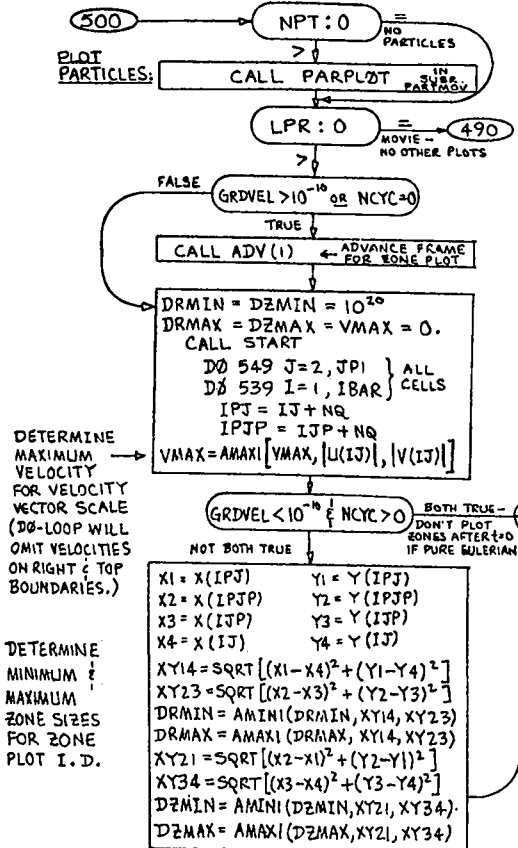 500
NPT : 0
=
NO
PARTICLES
>
PLOT
PARTICLES:
CALL PARPLOT IN
SUBR.
PARTMOV
LPR : 0
=
MOVIE –
NO OTHER PLOTS
490
>
FALSE
GRDVEL > 10⁻¹⁰ OR NCYC=0
TRUE
CALL ADV(1) ← ADVANCE FRAME
FOR ZONE PLOT
DRMIN = DZMIN = 10²⁰
DRMAX = DZMAX = VMAX = 0.
CALL START
DØ 549 J=2, JP1
DØ 539 I=1, IBAR
} ALL
CELLS
IPJ = IJ + NQ
IPJP = IJP + NQ
VMAX = AMAX1[VMAX, |U(IJ)|, |V(IJ)|]
DETERMINE
MAXIMUM
VELOCITY
FOR VELOCITY
VECTOR SCALE
(DØ-LOOP WILL
OMIT VELOCITIES
ON RIGHT & TOP
BOUNDARIES.)
GRDVEL < 10⁻¹⁰ & NCYC > 0
BOTH TRUE –
DON'T PLOT
ZONES AFTER t=0
IF PURE EULERIAN
NOT BOTH TRUE
X1 = X(IPJ) Y1 = Y(IPJ)
X2 = X(IPJP) Y2 = Y(IPJP)
X3 = X(IJP) Y3 = Y(IJP)
X4 = X(IJ) Y4 = Y(IJ)
XY14 = SQRT[(X1-X4)² + (Y1-Y4)²]
XY23 = SQRT[(X2-X3)² + (Y2-Y3)²]
DRMIN = AMIN1(DRMIN, XY14, XY23)
DRMAX = AMAX1(DRMAX, XY14, XY23)
XY21 = SQRT[(X2-X1)² + (Y2-Y1)²]
XY34 = SQRT[(X3-X4)² + (Y3-Y4)²]
DZMIN = AMIN1(DZMIN, XY21, XY34)
DZMAX = AMAX1(DZMAX, XY21, XY34)
DETERMINE
MINIMUM &
MAXIMUM
ZONE SIZES
FOR ZONE
PLOT I.D.